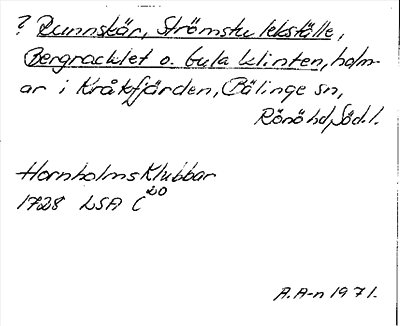 ? Runnskär, Strömsku lekställe,
Bergracklet o. Gula klinten, holm-
ar i Kråkfjärden, Bälinge sn,
Rönö hd, Söd.l.
Hornholms Klubbar
1728 LSA C 20
A.A-n 1971.